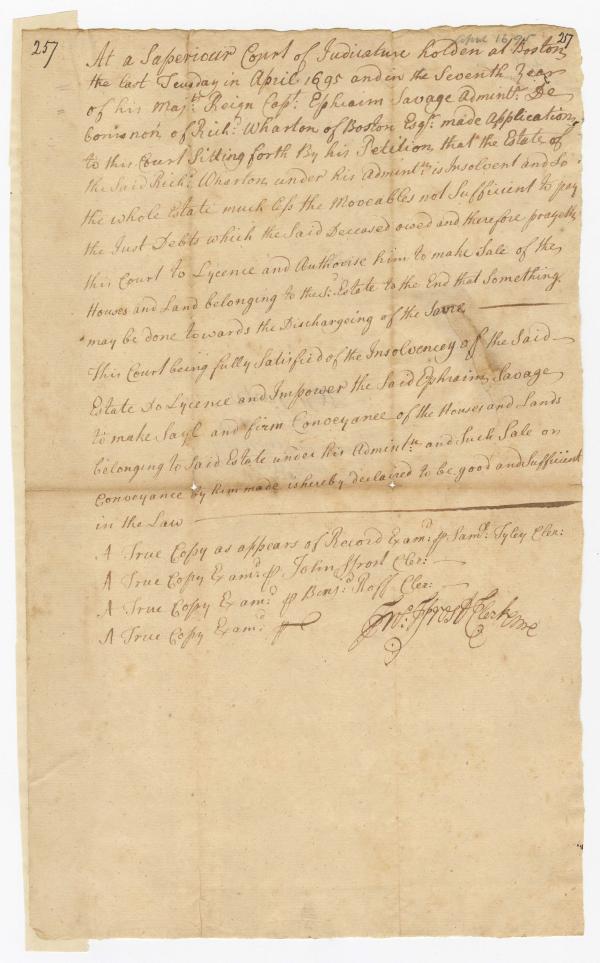 257
April 16 95
257
At a Superiour Court of Judicature holden at Boston
the last Tuesday in April 1695 and in the Seventh Year
of his Maj:ts Reign Capt. Ephraim Savage Admintr. De
bonis non of Rich:d Wharton of Boston Esqr. made Application
to this Court Sitting forth By his Petition, that the Estate of
the Said Rich:d Wharton under his Admintn is Insolvent and So
the whole Estate much less the Moveables not Sufficient to pay
the Just Debts which the Said Deceased owed and therefore prayeth
this Court to Lycence and Authorise him to make Sale of the
Houses and Land belonging to the S:d Estate to the End that Something
may be done towards the Dischargeing of the Same
This Court being fully Satisfied of the Insolvencey of the Said
Estate Do Lycence and Impower the Said Ephraim Savage
to make Sayl and firm Conveyance of the Houses and Lands
belonging to Said Estate under his Admintn and Such Sale or
Conveyance by him made is hereby declaired to be good and Sufficient
in the Law
A True Copy as appears of Record Exam:d ⅌ Sam:l Tyley Cler:
A True Copy Exam:d ⅌ John Ffrost Cler:
A True Copy Exam:d ⅌ Benj:a Roff Cler:
A True Copy Exam:d ⅌
Jno. Ffrost Clerk